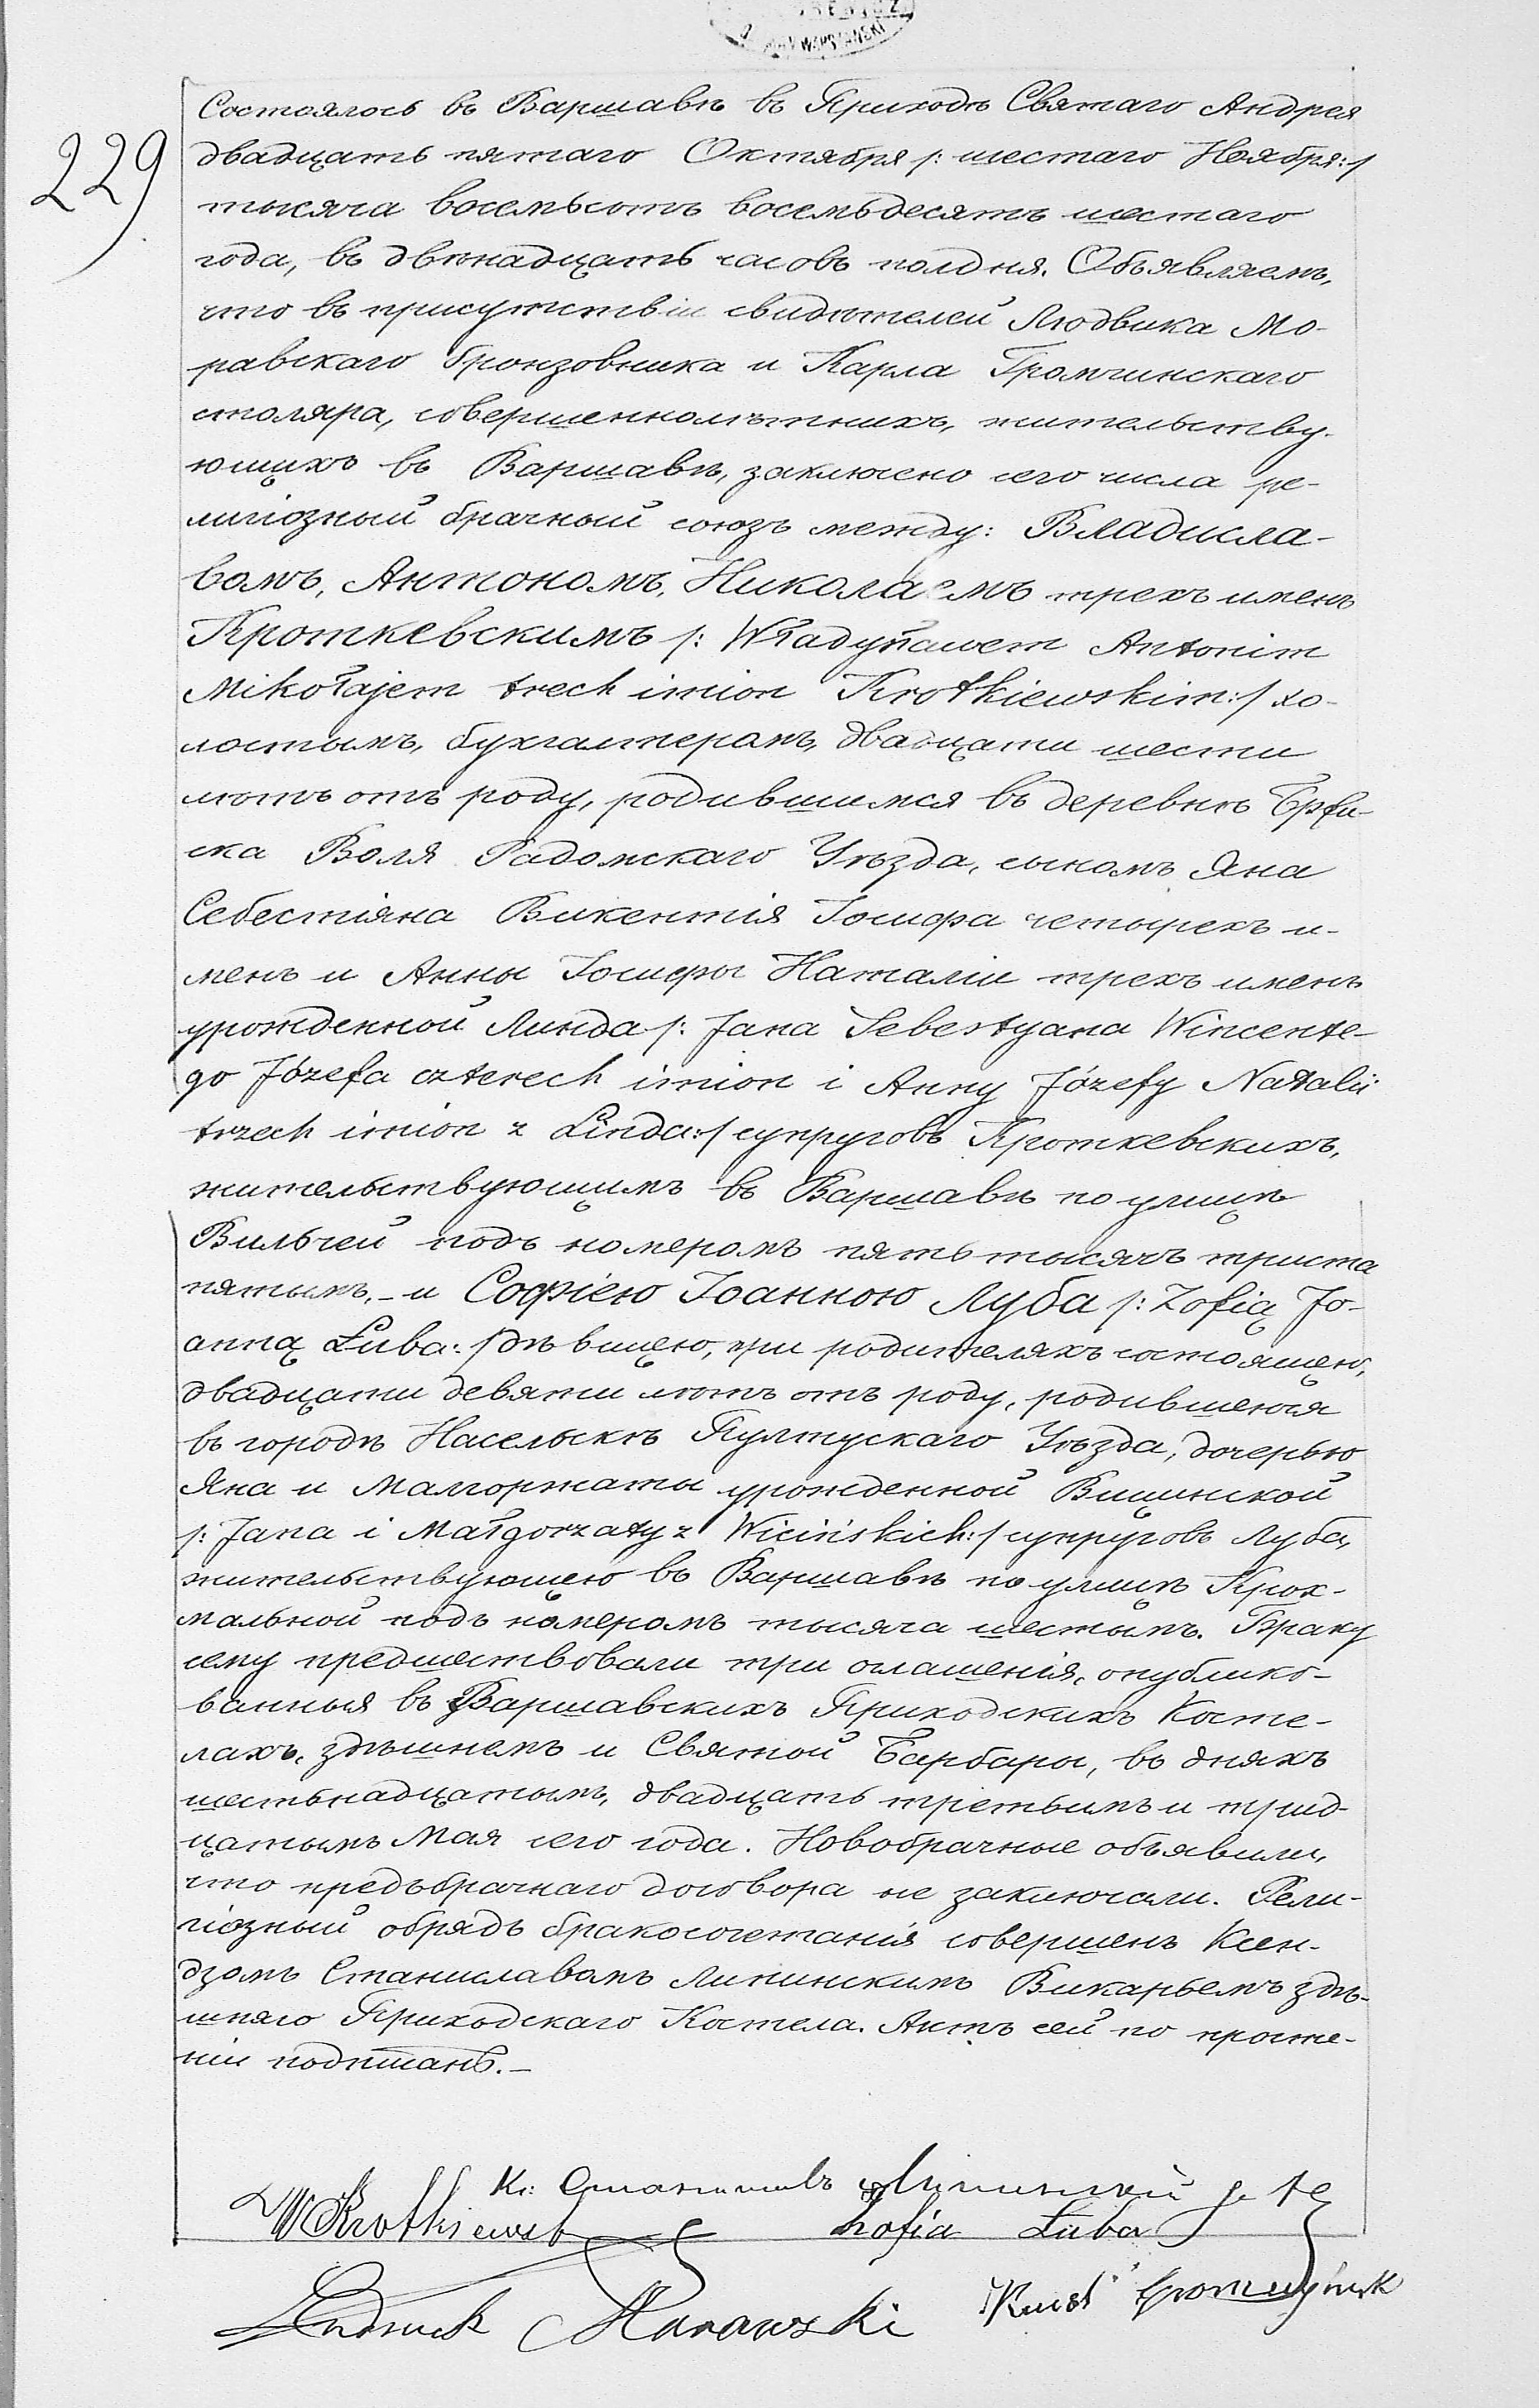 229
Состоялось въ Варшавѣ въ Приходѣ Святаго Андрея
двадцать пятаго Октября /: шестаго Ноября :/
тысяча восемьсотъ восемьдесятъ шестаго
года, въ двѣнадцать часовъ полдня. Объявляемъ,
что въ присутствіи свидѣтелей Людвика Мо-
равскаго бронзовника и Карла Громчинскаго
столяра, совершеннолѣтнихъ, жительству-
ющихъ въ Варшавѣ, заключено сего числа ре-
лигіозный брачный союзъ между: Владисла-
вомъ, Антономъ, Николаемъ трехъ именъ
Кроткевскимъ /: Władysławem Antonim
Mikołajem trech imion Krotkiewskim :/ хо-
лостымъ, бухгалтеромъ, двадцати шести
лѣтъ отъ роду, родившимся въ деревнѣ
ска Воля Радомскаго Уѣзда, сыномъ Яна
Себестіяна Викентія Іосифа четырехъ и-
менъ и Анны Іосифы Наталіи трехъ именъ
урожденной Линда /: Jana Sebestyana Wincente-
go Józefa czterech imion i Anny Józefy Natalii
trzech imion z Linda :/ супруговъ Кроткевскихъ,
жительствующимъ въ Варшавѣ по улицѣ
Вильчей подъ номеромъ пять тысячъ триста
пятымъ, – и Софіею Іоанною Луба /: Zofią Jo-
anną Łuba :/ дѣвицею, при родителяхъ состоящею,
двадцати девяти лѣтъ отъ роду, родившеюся
въ городѣ Насельскѣ Пултускаго Уѣзда, дочерью
Яна и Малгоржаты урожденной Вицинской
/: Jana i Małgorzaty z Wicińskich :/ супруговъ Луба,
жительствующею въ Варшавѣ по улицѣ Крох-
мальной подъ номеромъ тысяча шестымъ. Браку
сему предшествовали три оглашенія, опублико-
ванныя въ Варшавскихъ Приходскихъ Косте-
лахъ, здѣшнемъ и Святой Барбары, въ дняхъ
шестьнадцатымъ, двадцать третьимъ и трид-
цатымъ Мая сего года. Новобрачные объявили,
что предъбрачнаго договора не заключали. Рели-
гіозный обрядъ бракосочетанія совершенъ Ксен-
дзомъ Станиславомъ Липинскимъ Викарьемъ здѣ-
шняго Приходскаго Костела. Актъ сей по прочте-
ніи подписанъ. –
К: Станиславъ Липинскій
WKrotkiewski Zofia Łuba
Ludwik Morawski Karol Gromczyński